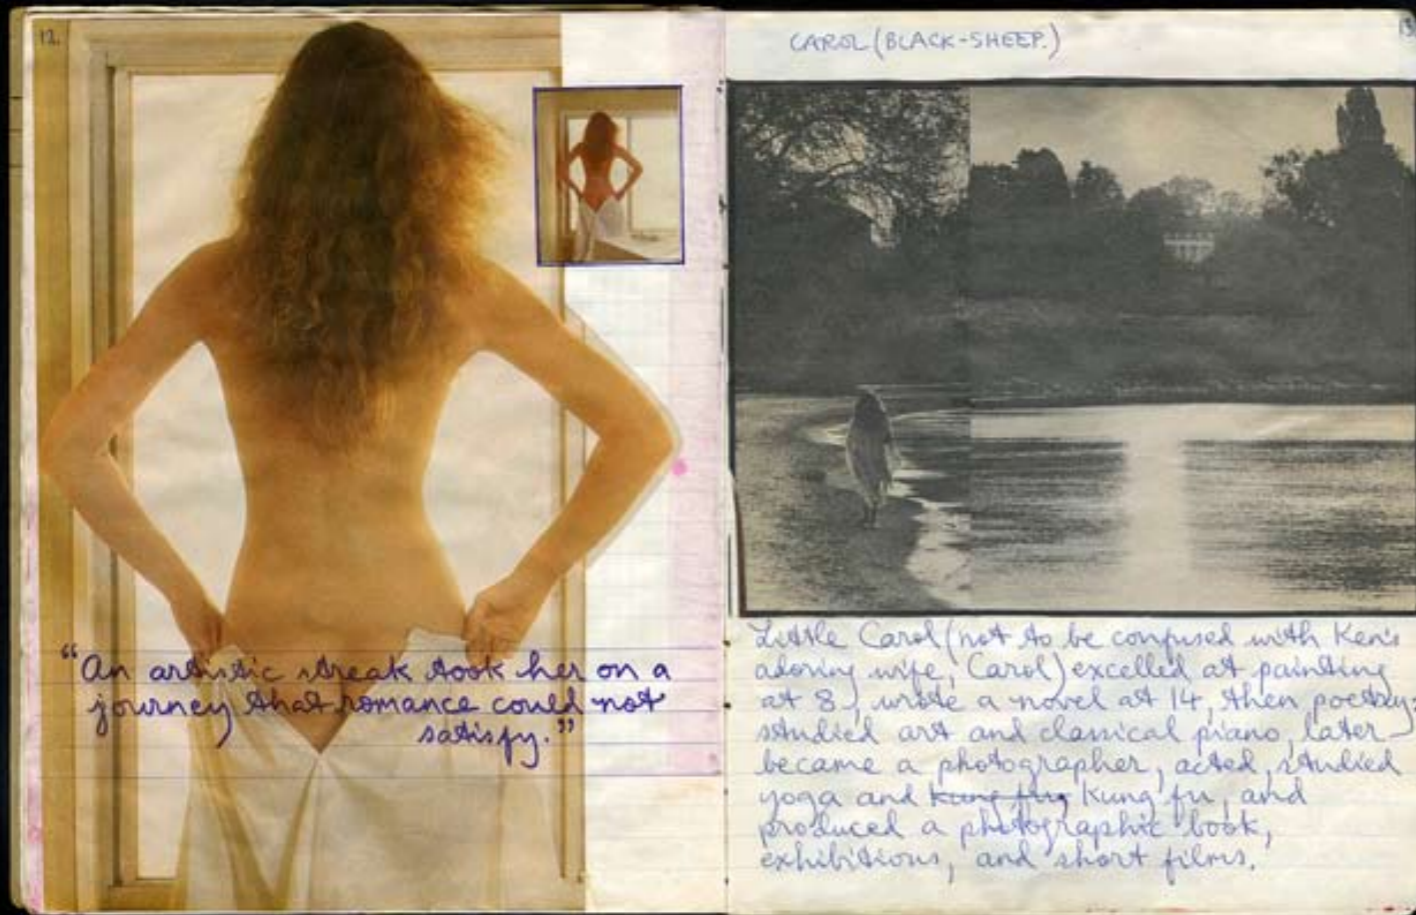 12.
“An artistic streak took her on a
journey that romance could not
satisfy.”
CAROL (BLACK-SHEEP.)
13
Little Carol (not to be confused with Ken's
adoring wife, Carol) excelled at painting
at 8, wrote a novel at 14, then poetry,
studied art and classical piano, later
became a photographer, acted, studied
yoga and kung fu, Kung fu, and
produced a photographic book,
exhibitions, and short films.